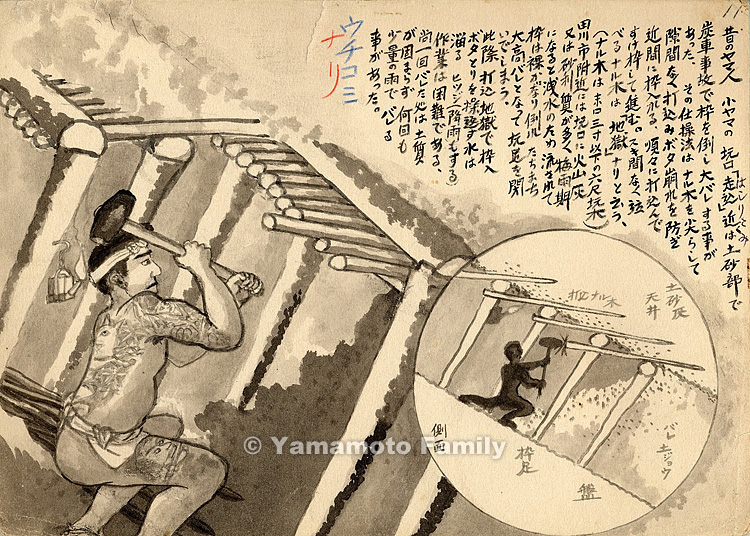 11
昔のヤマ人 小ヤマの坑口「走込」近は土砂部で
はしりこみ
炭車事故で枠を倒し大バレする事が
あった。その仕操法はナル木を尖らして
隙間なく打込みボタ崩れを防ぎ
近間に枠入れる、順々に打込んで
すけ枠して進む。スキ間なく並
べるナル木は地獄ナリと云う、
(ナル木はホロ三寸以下の六尺坑木)
田川市附近には坑口に火山灰
又は砂利質が多く梅雨期
になると浅水のため流されて
枠は裸かなり倒れたちまち
大高バレとなって坑尾を開
いでしまう。
此際打込地獄で枠入
ボタとりを操返す水は
溜る ヒツジ降雨もする)
作業は困難である、
尚一回バレた処は土質
が固まらず何回も
少量の雨でバレる
事があった。
ウチコミ
ナリ
土砂灰
天井
打込ナル木
バレ土ジョウ
側面
枠足
盤
© Yamamoto Family